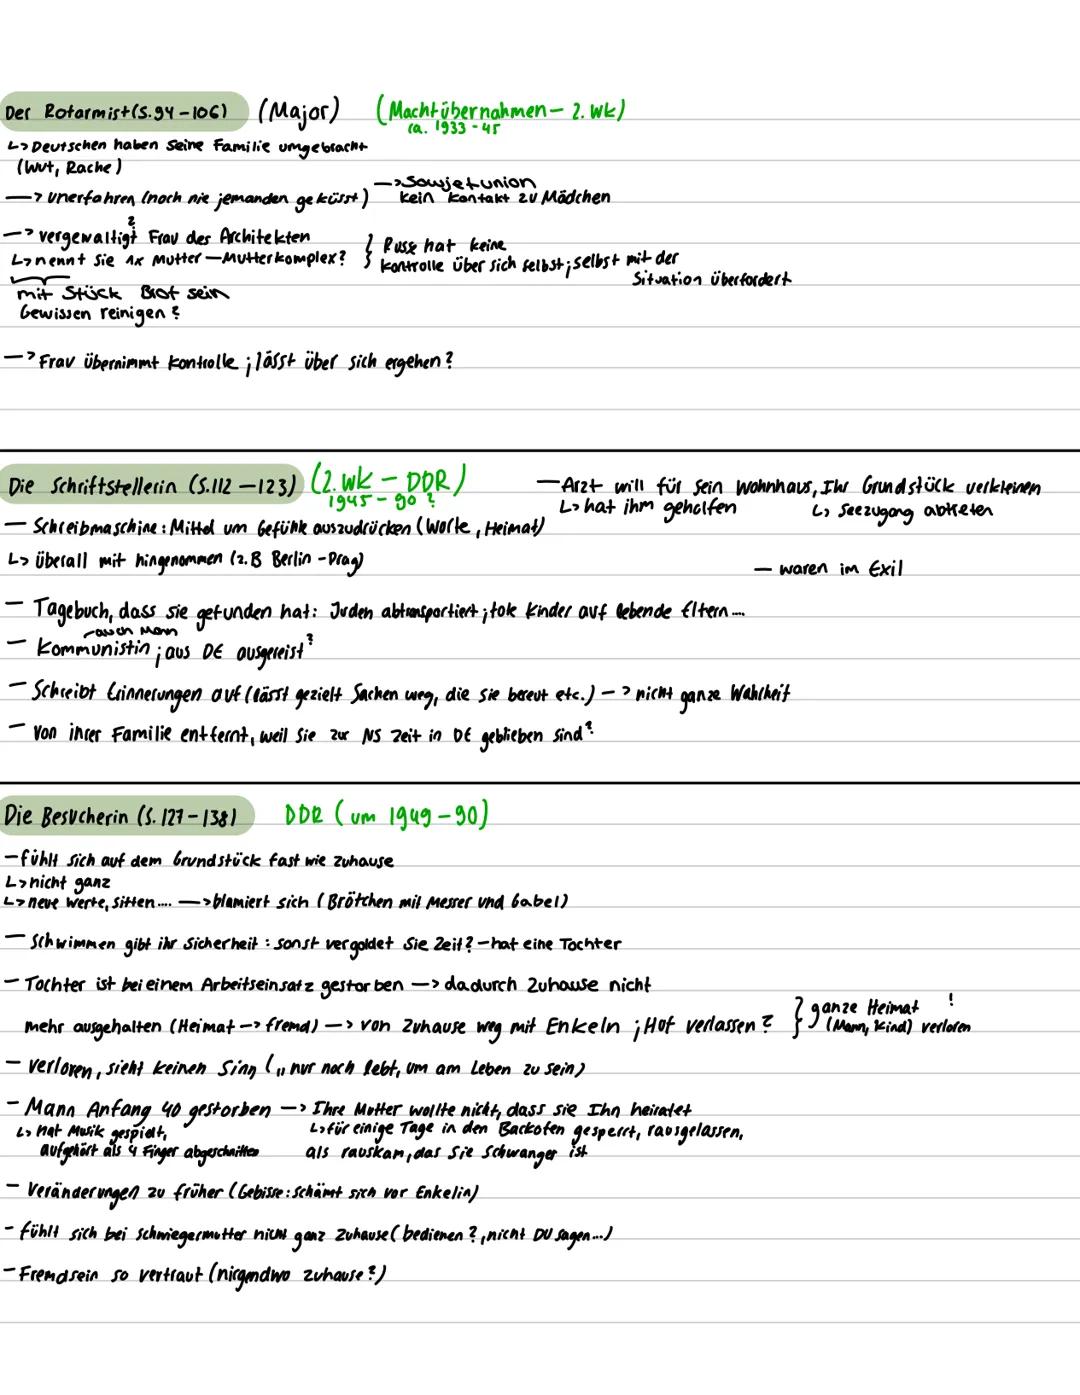 Der Rotarmist (S.94-106) (Major) (Machtübernahmen - 2. Wk)
ca. 1933-45
↳ Deutschen haben seine Familie umgebracht
(Wut, Rache)
→ unerfahren (noch nie jemanden geküsst) → Sowjetunion
kein Kontakt zu Mädchen
→ vergewaltigt? Frau des Architekten
↳ nennt sie 1x Mutter - Mutterkomplex? } Russe hat keine
Kontrolle über sich selbst; selbst mit der
Situation überfordert
mit Stück Brot sein
Gewissen reinigen?
→ Frau übernimmt Kontrolle; lässt über sich ergehen?
Die Schriftstellerin (S.112-123) (2. Wk - DDR)
1945-90?
- Schreibmaschine: Mittel um Gefühle auszudrücken (Worte, Heimat)
↳ überall mit hingenommen (z.B Berlin - Prag)
- Arzt will für sein Wohnhaus, Ihr Grundstück verkleinern
↳ hat ihm geholfen ↳ Seezugang abtreten
- waren im Exil
- Tagebuch, dass sie gefunden hat: Juden abtransportiert; tote Kinder auf lebende Eltern...
auch Mann
- Kommunistin; aus DE ausgereist?
- Schreibt Erinnerungen auf (lässt gezielt Sachen weg, die sie bereut etc.) → nicht ganze Wahrheit
- von ihrer Familie entfernt, weil sie zur NS Zeit in DE geblieben sind?
Die Besucherin (S. 127-138) DDR (um 1949-90)
- fühlt sich auf dem Grundstück fast wie zuhause
↳ nicht ganz
↳ neue Werte, Sitten.... → blamiert sich (Brötchen mit Messer und Gabel)
- Schwimmen gibt ihr Sicherheit: sonst vergoldet sie Zeit? - hat eine Tochter
- Tochter ist bei einem Arbeitseinsatz gestorben → dadurch Zuhause nicht
mehr ausgehalten (Heimat → fremd) → von Zuhause weg mit Enkeln; Hof verlassen? } ganze Heimat !
(Mann, Kind) verloren
- verloren, sieht keinen Sinn („nur noch lebt, um am Leben zu sein)
- Mann Anfang 40 gestorben → Ihre Mutter wollte nicht, dass sie Ihn heiratet
↳ hat Musik gespielt,
aufgehört als 4 Finger abgeschnitten
↳ für einige Tage in den Backofen gesperrt, rausgelassen,
als rauskam, das sie schwanger ist
- Veränderungen zu früher (Gebisse: schämt sich vor Enkelin)
- fühlt sich bei Schwiegermutter nicht ganz Zuhause (bedienen?, nicht DU sagen...)
- Fremdsein so vertraut (nirgendwo zuhause?)